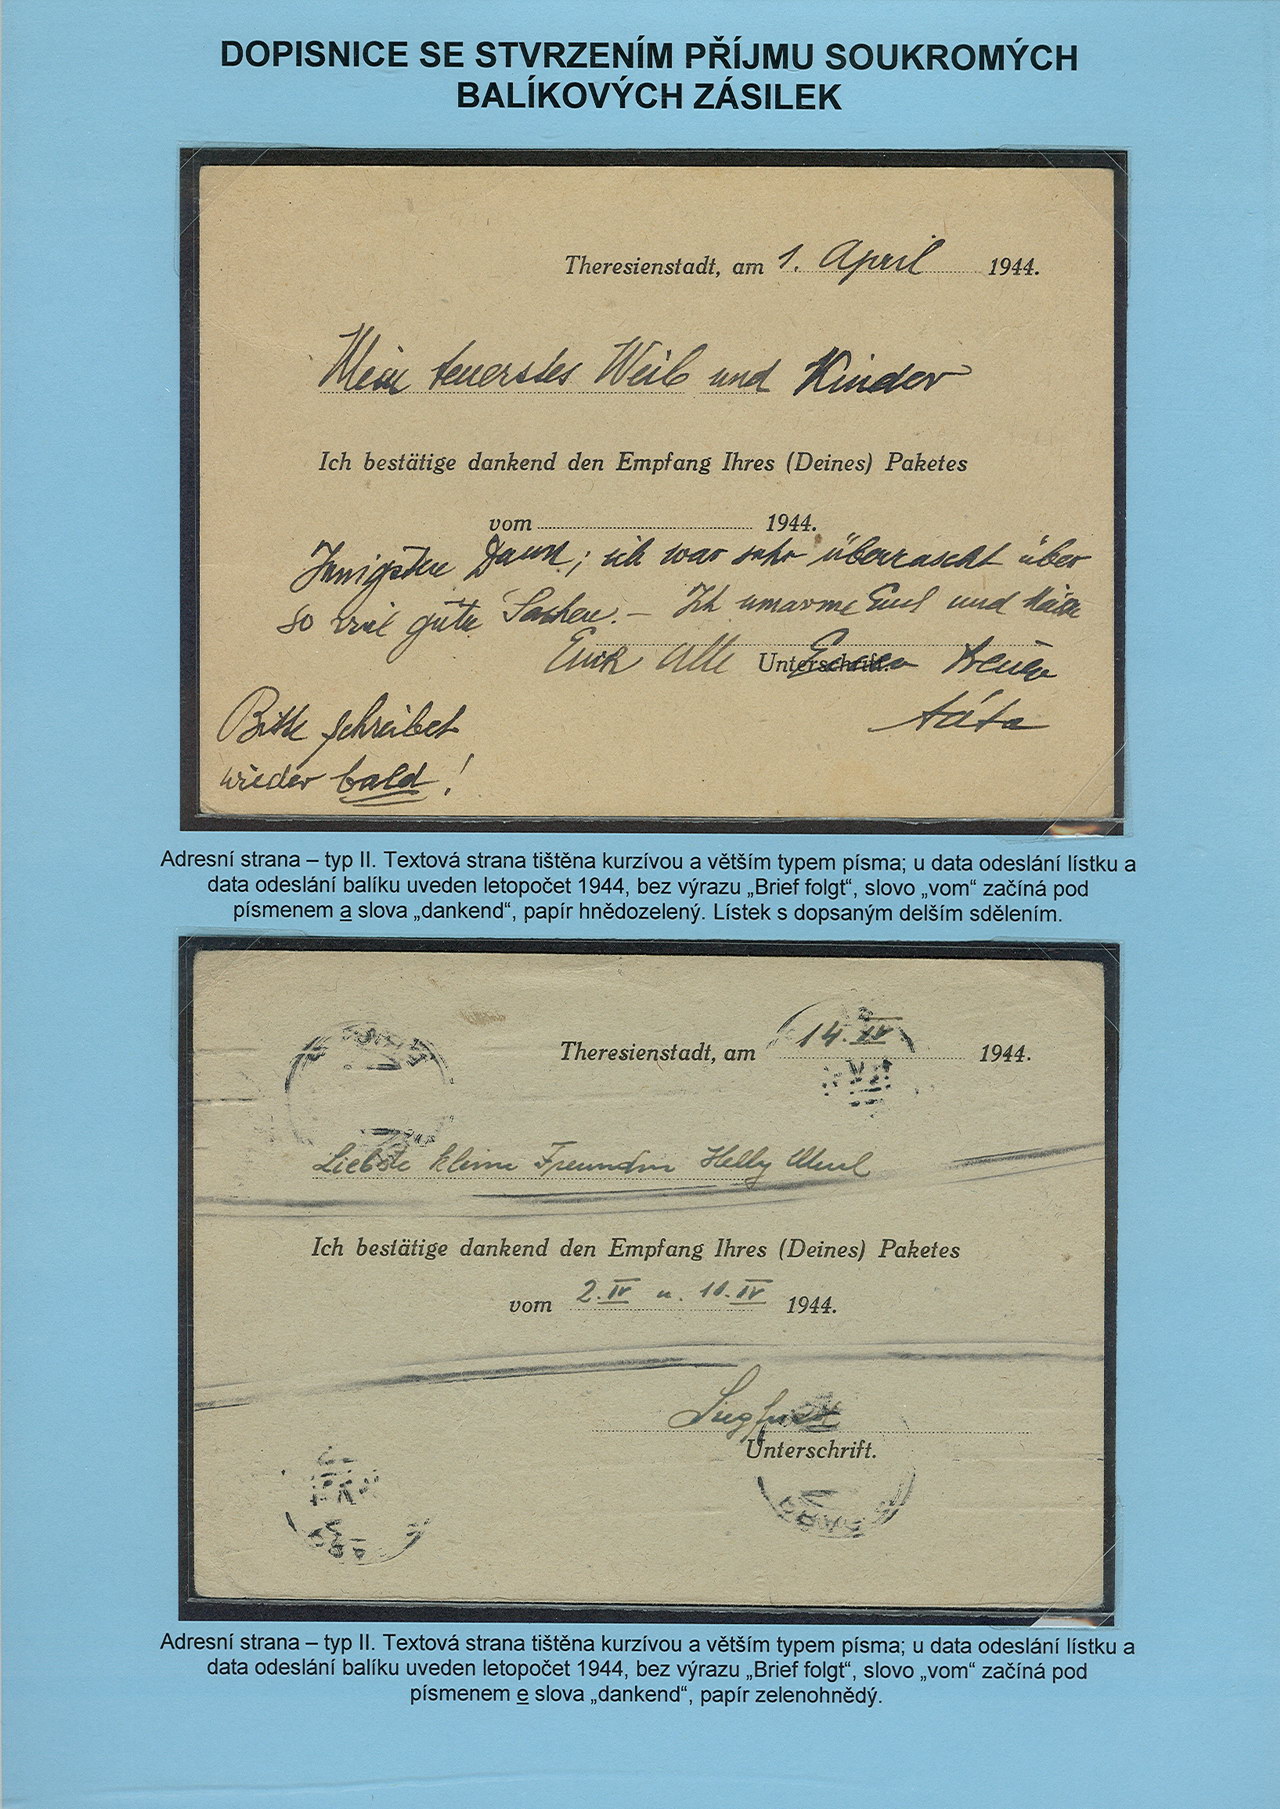 DOPISNICE SE STVRZENÍM PŘÍJMU SOUKROMÝCH
BALÍKOVÝCH ZÁSILEK
Theresienstadt, am 1. April 1944.
Mein teuerstes Weib und Kinder
Ich bestätige dankend den Empfang Ihres (Deines) Paketes
vom 1944.
Innigsten Dank; ich war sehr überrascht über
so viel gute Sachen. – Ich umarme Euch und küsse
Euch alle Euer treuer
Unterschrift.
táta
Bitte schreibet
wieder bald!
Adresní strana – typ II. Textová strana tištěna kurzívou a větším typem písma; u data odeslání lístku a
data odeslání balíku uveden letopočet 1944, bez výrazu „Brief folgt“, slovo „vom“ začíná pod
písmenem a slova „dankend“, papír hnědozelený. Lístek s dopsaným delším sdělením.
Theresienstadt, am 14. IV 1944.
Liebste kleine Freundin Helly
Ich bestätige dankend den Empfang Ihres (Deines) Paketes
vom 2. IV u. 10. IV 1944.
Siegfried
Unterschrift.
Adresní strana – typ II. Textová strana tištěna kurzívou a větším typem písma; u data odeslání lístku a
data odeslání balíku uveden letopočet 1944, bez výrazu „Brief folgt“, slovo „vom“ začíná pod
písmenem e slova „dankend“, papír zelenohnědý.